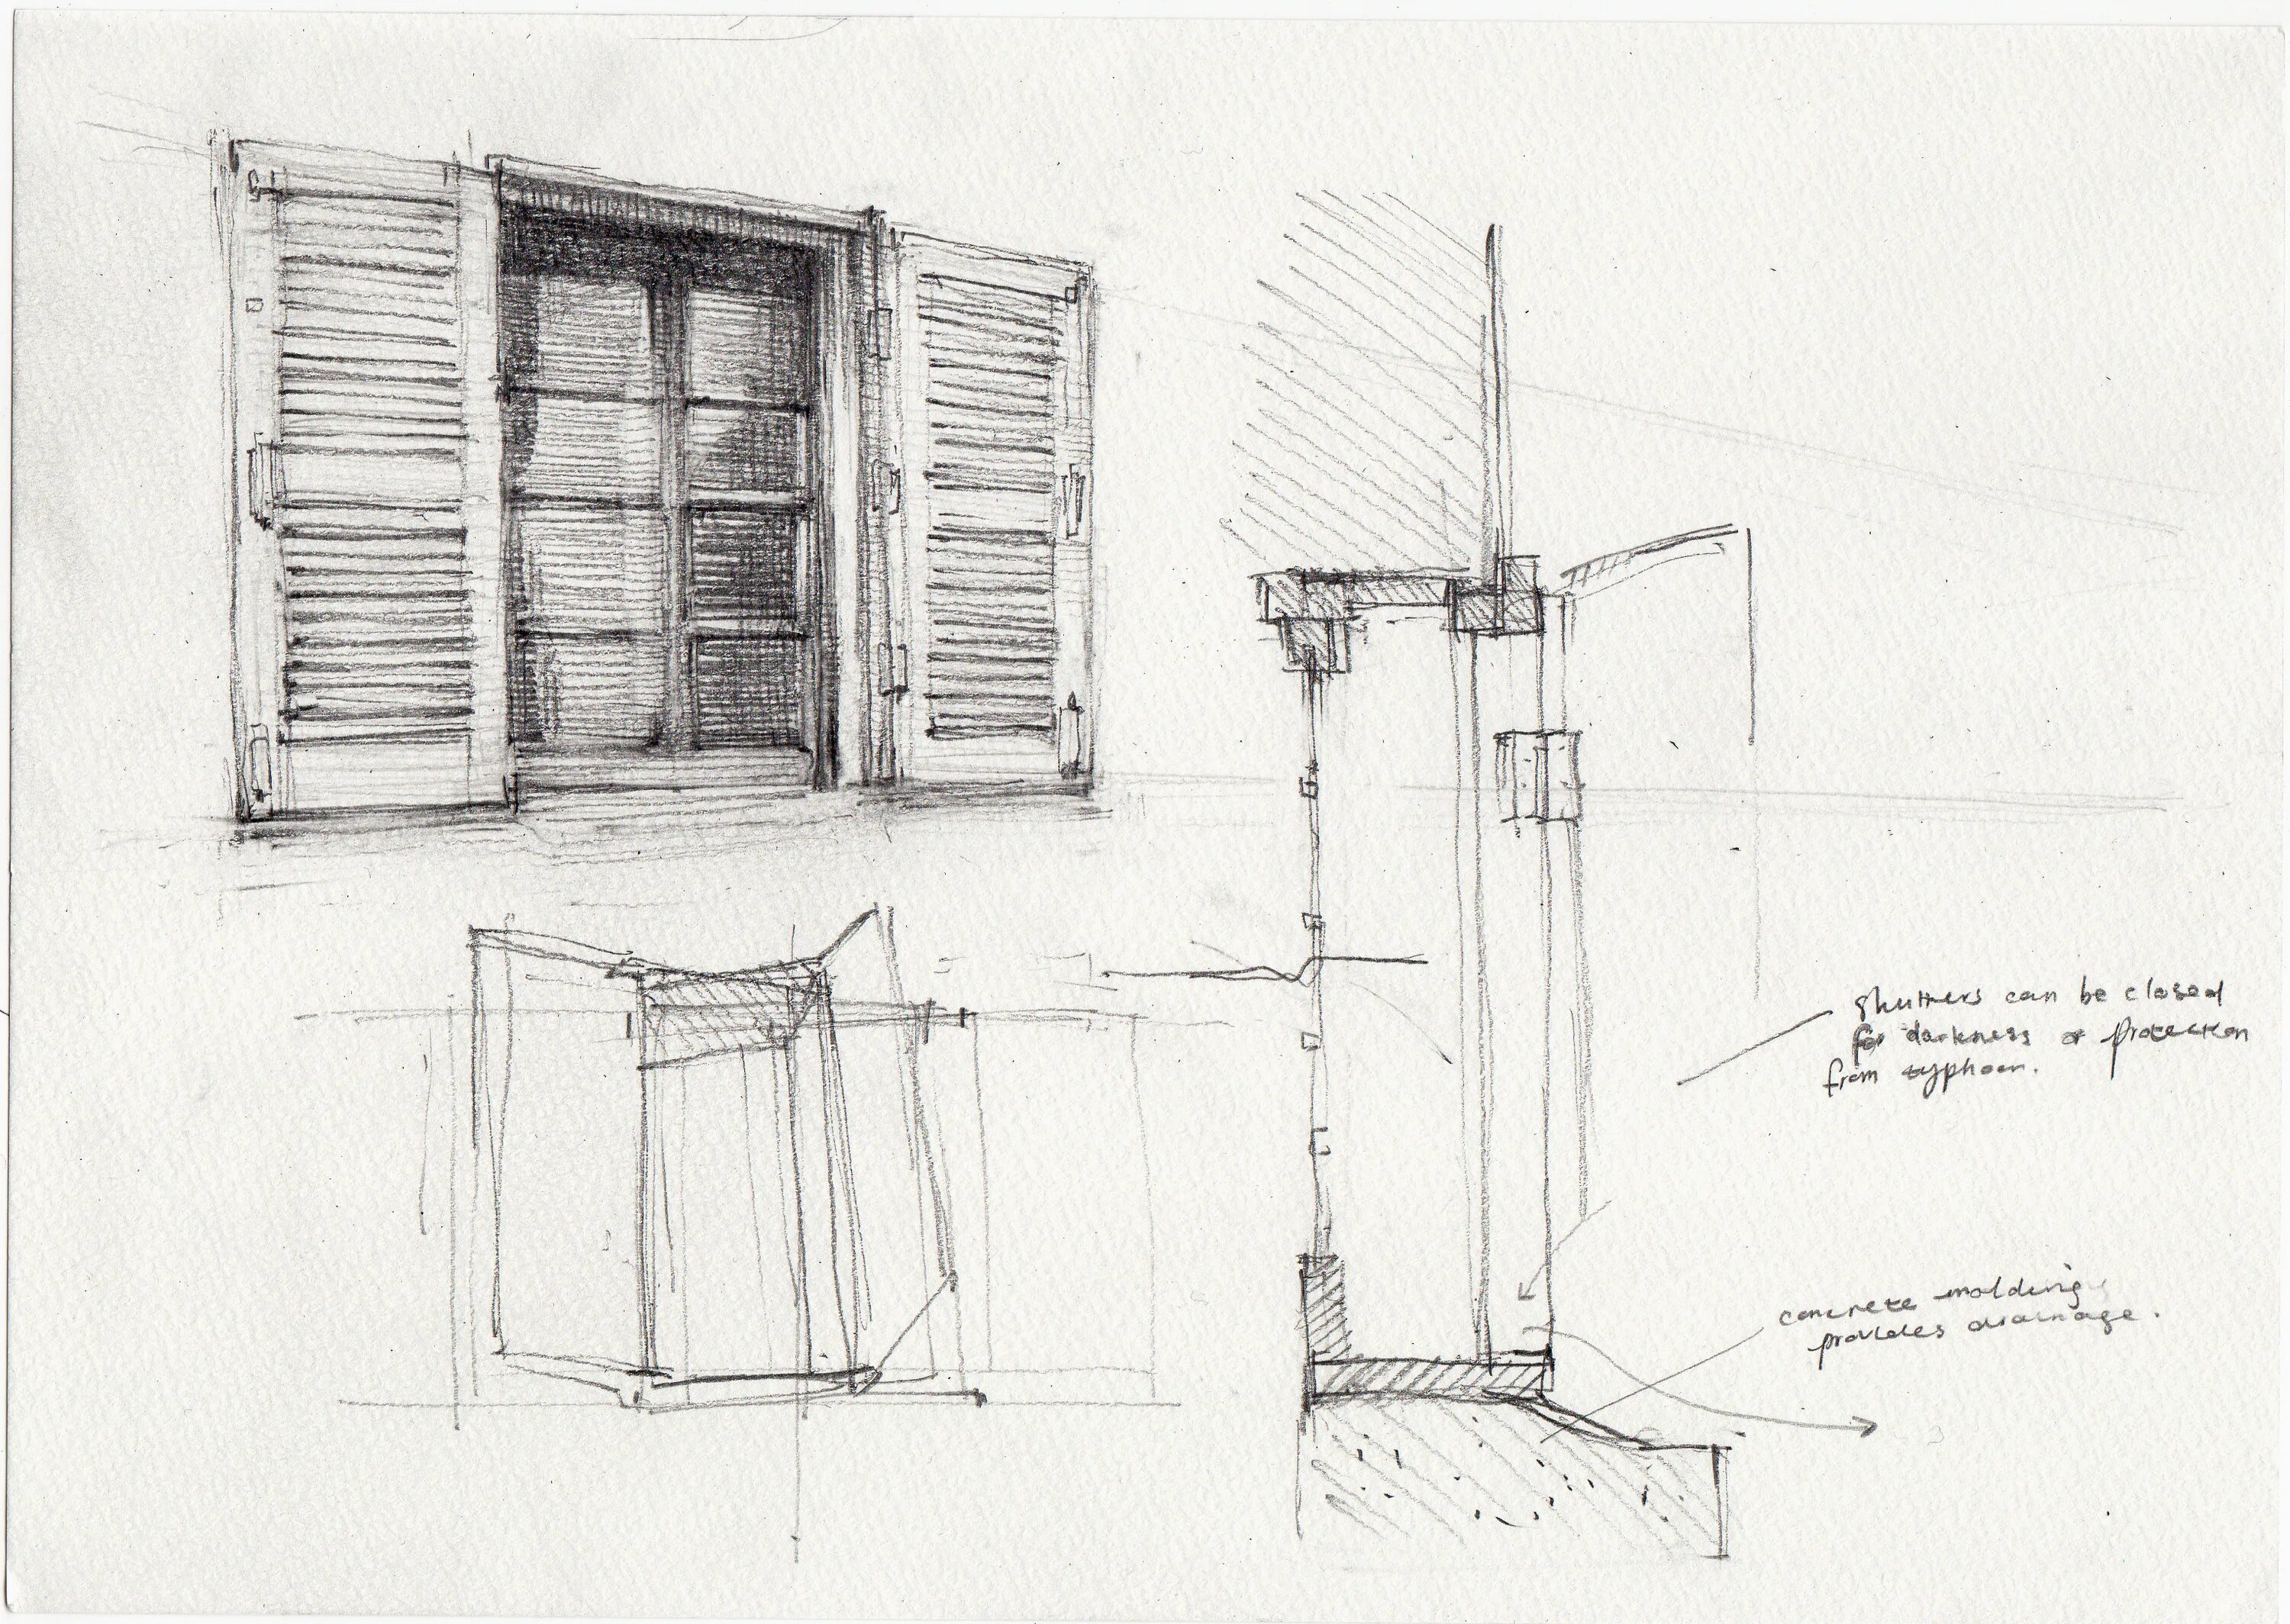 Shutters can be closed
for darkness or protection
from typhoon.
concrete molding
provides drainage.